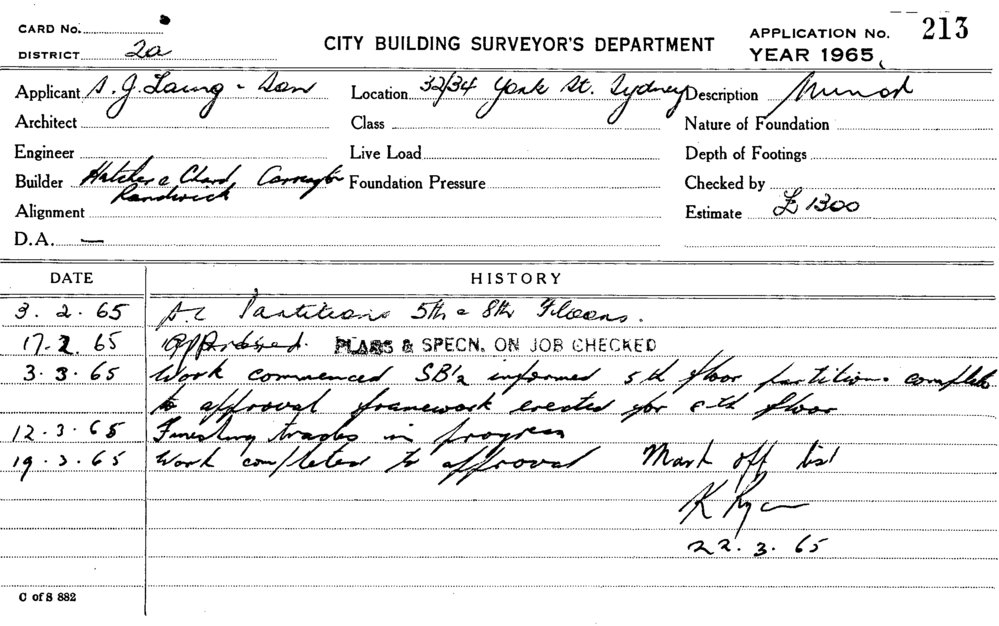 CARD No.
213
DISTRICT 2a
CITY BUILDING SURVEYOR'S DEPARTMENT
APPLICATION No.
YEAR 1965
Applicant S. J. Laing & Son
Location 32/34 York St. Sydney
Description Minor
Architect
Class
Nature of Foundation
Engineer
Live Load
Depth of Footings
Builder Hatcher & Clard,
Randwick
Foundation Pressure
Checked by
Alignment
Estimate £1300
D.A. —
DATE HISTORY
3. 2. 65 Partitions 5th & 8th Floors.
17. 2. 65 Approved. PLANS & SPECN. ON JOB CHECKED
3. 3. 65 Work commenced informed 5th floor partition complete
to approval framework erected for 8th floor
12. 3. 65 Finishing trades in progress
19. 3. 65 Work completed to approval Mark off list
K Ryan
22. 3. 65
C of S 882